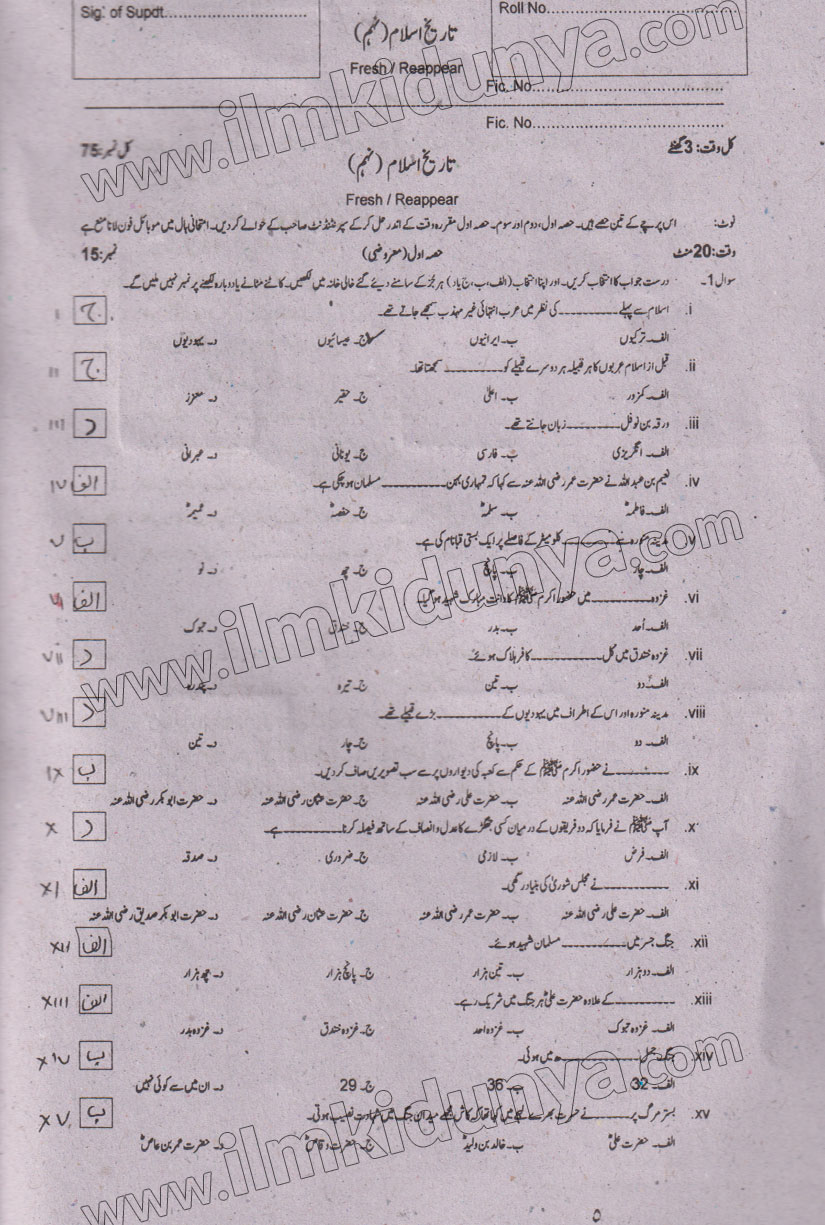 Sig. of Supdt.......................................
Roll No.......................................
تاریخ اسلام (نہم)
Fresh / Reappear
Fic. No.......................................
Fic. No.......................................
کل وقت: 3 گھنٹے
کل نمبر: 75
تاریخ اسلام (نہم)
Fresh / Reappear
نوٹ: اس پرچے کے تین حصے ہیں۔ حصہ اول، دوم اور سوم۔ حصہ اول مقررہ وقت کے اندر حل کر کے سپرنٹنڈنٹ صاحب کے حوالے کر دیں۔ امتحانی ہال میں موبائل فون لانا منع ہے
وقت: 20 منٹ حصہ اول (معروضی) نمبر: 15
سوال 1۔ درست جواب کا انتخاب کریں۔ اور اپنا انتخاب (الف، ب، ج یا د) ہر جُز کے سامنے دیئے گئے خالی خانہ میں لکھیں۔ کاٹنے مٹانے یا دوبارہ لکھنے پر نمبر نہیں ملیں گے۔
i. اسلام سے پہلے __________ کی نظر میں عرب انتہائی غیر مہذب سمجھے جاتے تھے۔ ج i
الف۔ ترکیوں ب۔ ایرانیوں ج۔ عیسائیوں د۔ یہودیوں
ii. قبل از اسلام عربوں کا ہر قبیلہ ہر دوسرے قبیلے کو __________ سمجھتا تھا۔ ج ii
الف۔ کمزور ب۔ اعلیٰ ج۔ حقیر د۔ معزز
iii. ورقہ بن نوفل __________ زبان جانتے تھے۔ د iii
الف۔ انگریزی ب۔ فارسی ج۔ یونانی د۔ عبرانی
iv. نعیم بن عبداللہ نے حضرت عمر رضی اللہ عنہ سے کہا کہ تمہاری بہن __________ مسلمان ہو چکی ہے۔ الف iv
الف۔ فاطمہؓ ب۔ سلمہؓ ج۔ حفصہؓ د۔ عمیرؓ
v. مدینہ منورہ سے __________ کلومیٹر کے فاصلے پر ایک بستی قبا نام کی ہے۔ ب v
الف۔ چار ب۔ پانچ ج۔ چھ د۔ نو
vi. غزوہ __________ میں حضور اکرم ﷺ کا دانت مبارک شہید ہو گیا۔ الف vi
الف۔ اُحد ب۔ بدر ج۔ خندق د۔ تبوک
vii. غزوہ خندق میں کل __________ کافر ہلاک ہوئے۔ د vii
الف۔ دو ب۔ تین ج۔ تیرہ د۔ پندرہ
viii. مدینہ منورہ اور اس کے اطراف میں یہودیوں کے __________ بڑے قبیلے تھے۔ د viii
الف۔ دو ب۔ پانچ ج۔ چار د۔ تین
ix. __________ نے حضور اکرم ﷺ کے حکم سے کعبہ کی دیواروں پر سے سب تصویریں صاف کر دیں۔ ب ix
الف۔ حضرت عمر رضی اللہ عنہ ب۔ حضرت علی رضی اللہ عنہ ج۔ حضرت عثمان رضی اللہ عنہ د۔ حضرت ابو بکر رضی اللہ عنہ
x. آپ ﷺ نے فرمایا کہ دو فریقوں کے درمیان کسی جھگڑے کا عدل و انصاف کے ساتھ فیصلہ کرنا __________ ہے۔ د x
الف۔ فرض ب۔ لازمی ج۔ ضروری د۔ صدقہ
xi. __________ نے مجلس شوریٰ کی بنیاد رکھی۔ الف xi
الف۔ حضرت علی رضی اللہ عنہ ب۔ حضرت عمر رضی اللہ عنہ ج۔ حضرت عثمان رضی اللہ عنہ د۔ حضرت ابو بکر صدیق رضی اللہ عنہ
xii. جنگ جسر میں __________ مسلمان شہید ہوئے۔ الف xii
الف۔ دو ہزار ب۔ تین ہزار ج۔ پانچ ہزار د۔ چھ ہزار
xiii. __________ کے علاوہ حضرت علیؓ ہر جنگ میں شریک رہے۔ الف xiii
الف۔ غزوہ تبوک ب۔ غزوہ احد ج۔ غزوہ خندق د۔ غزوہ بدر
xiv. جنگ جمل __________ ھ میں ہوئی۔ ب xiv
الف۔ 32 ب۔ 36 ج۔ 29 د۔ ان میں سے کوئی نہیں
xv. بستر مرگ پر __________ نے حسرت بھرے لہجے میں کہا تھا کہ کاش مجھے میدان جنگ میں شہادت نصیب ہوتی۔ ب xv
الف۔ حضرت علیؓ ب۔ خالد بن ولیدؓ ج۔ حضرت وقاصؓ د۔ حضرت عمر بن عاصؓ
۵
www.ilmkidunya.com
www.ilmkidunya.com
www.ilmkidunya.com